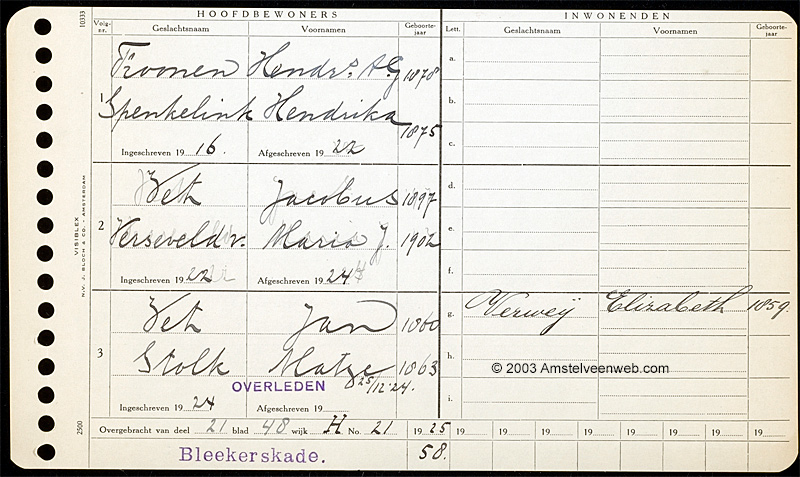 HOOFDBEWONERS
INWONENDEN
Volg-nr.
Geslachtsnaam
Voornamen
Geboorte-jaar
Lett.
Geslachtsnaam
Voornamen
Geboorte-jaar
10333
Troonen Hendrs. A.G 1878
1 Spenkelink Hendrika 1875
Ingeschreven 1916. Afgeschreven 1922
Vet Jacobus 1897
2 Verseveld v. Maria J. 1902
Ingeschreven 1922 Afgeschreven 1924
Vet Jan 1860
3 Stolk 1863
OVERLEDEN 25/12'24.
Ingeschreven 1924 Afgeschreven 19
a.
b.
c.
d.
e.
f.
g. Verweij Elizabeth 1859.
h.
i.
© 2003 Amstelveenweb.com
VISIBLEX
N.V. J. BLOCH & CO., AMSTERDAM
2500
Overgebracht van deel 21 blad 48 wijk H No. 21 1925 19 19 19 19 19 19 19 19
Bleekerskade. 58.